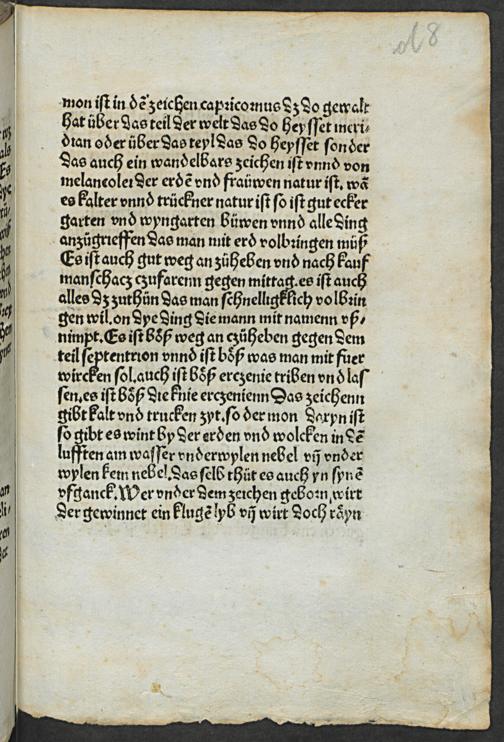 d8
mon ist in dē zeichen capricornus dz do gewalt
hat über das teil der welt das do heysset meri⸗
dian oder über das teyl das do heysset sonder
das auch ein wandelbars zeichen ist vnnd von
melancolei der erdē vnd fraüwen natur ist. wā
es kalter vnnd trückner natur ist so ist gut ecker
garten vnd wyngarten büwen vnnd alle ding
anzügrieffen das man mit erd volbringen müß
Es ist auch gut weg an züheben vnd nach kauf
manschacz czufarenn gegen mittag. es ist auch
alles dz zuthün das man schnelligklich volbrin
gen wil. on dye ding die mann mit namenn vß⸗
nimpt. Es ist böß weg an czüheben gegen dem
teil septentrion vnnd ist böß was man mit fuer
wircken sol. auch ist böß erczenie triben vnd las
sen. es ist böß die knie erczenienn Das zeichenn
gibt kalt vnd trucken zyt. so der mon daryn ist
so gibt es wint by der erden vnd wolcken in dē
lufften am wasser vnderwylen nebel vn̄ vnder
wylen kein nebel. das selb thüt es auch yn synē
vfganck. Wer vnder dem zeichen geborn, wirt
der gewinnet ein klugē lyb vn̄ wirt doch räyn